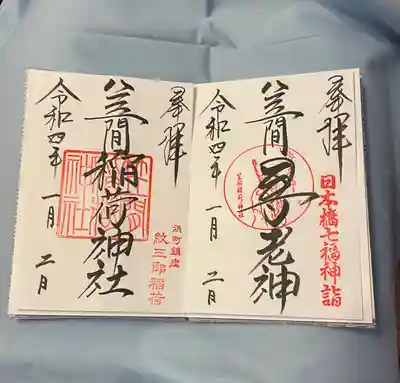 奉拝
日本橋七福神詣
笠間寿老神
令和四年 一月 二日
奉拝
浜町鎮座
紋三郎稲荷
笠間稲荷神社
令和四年 一月 二日